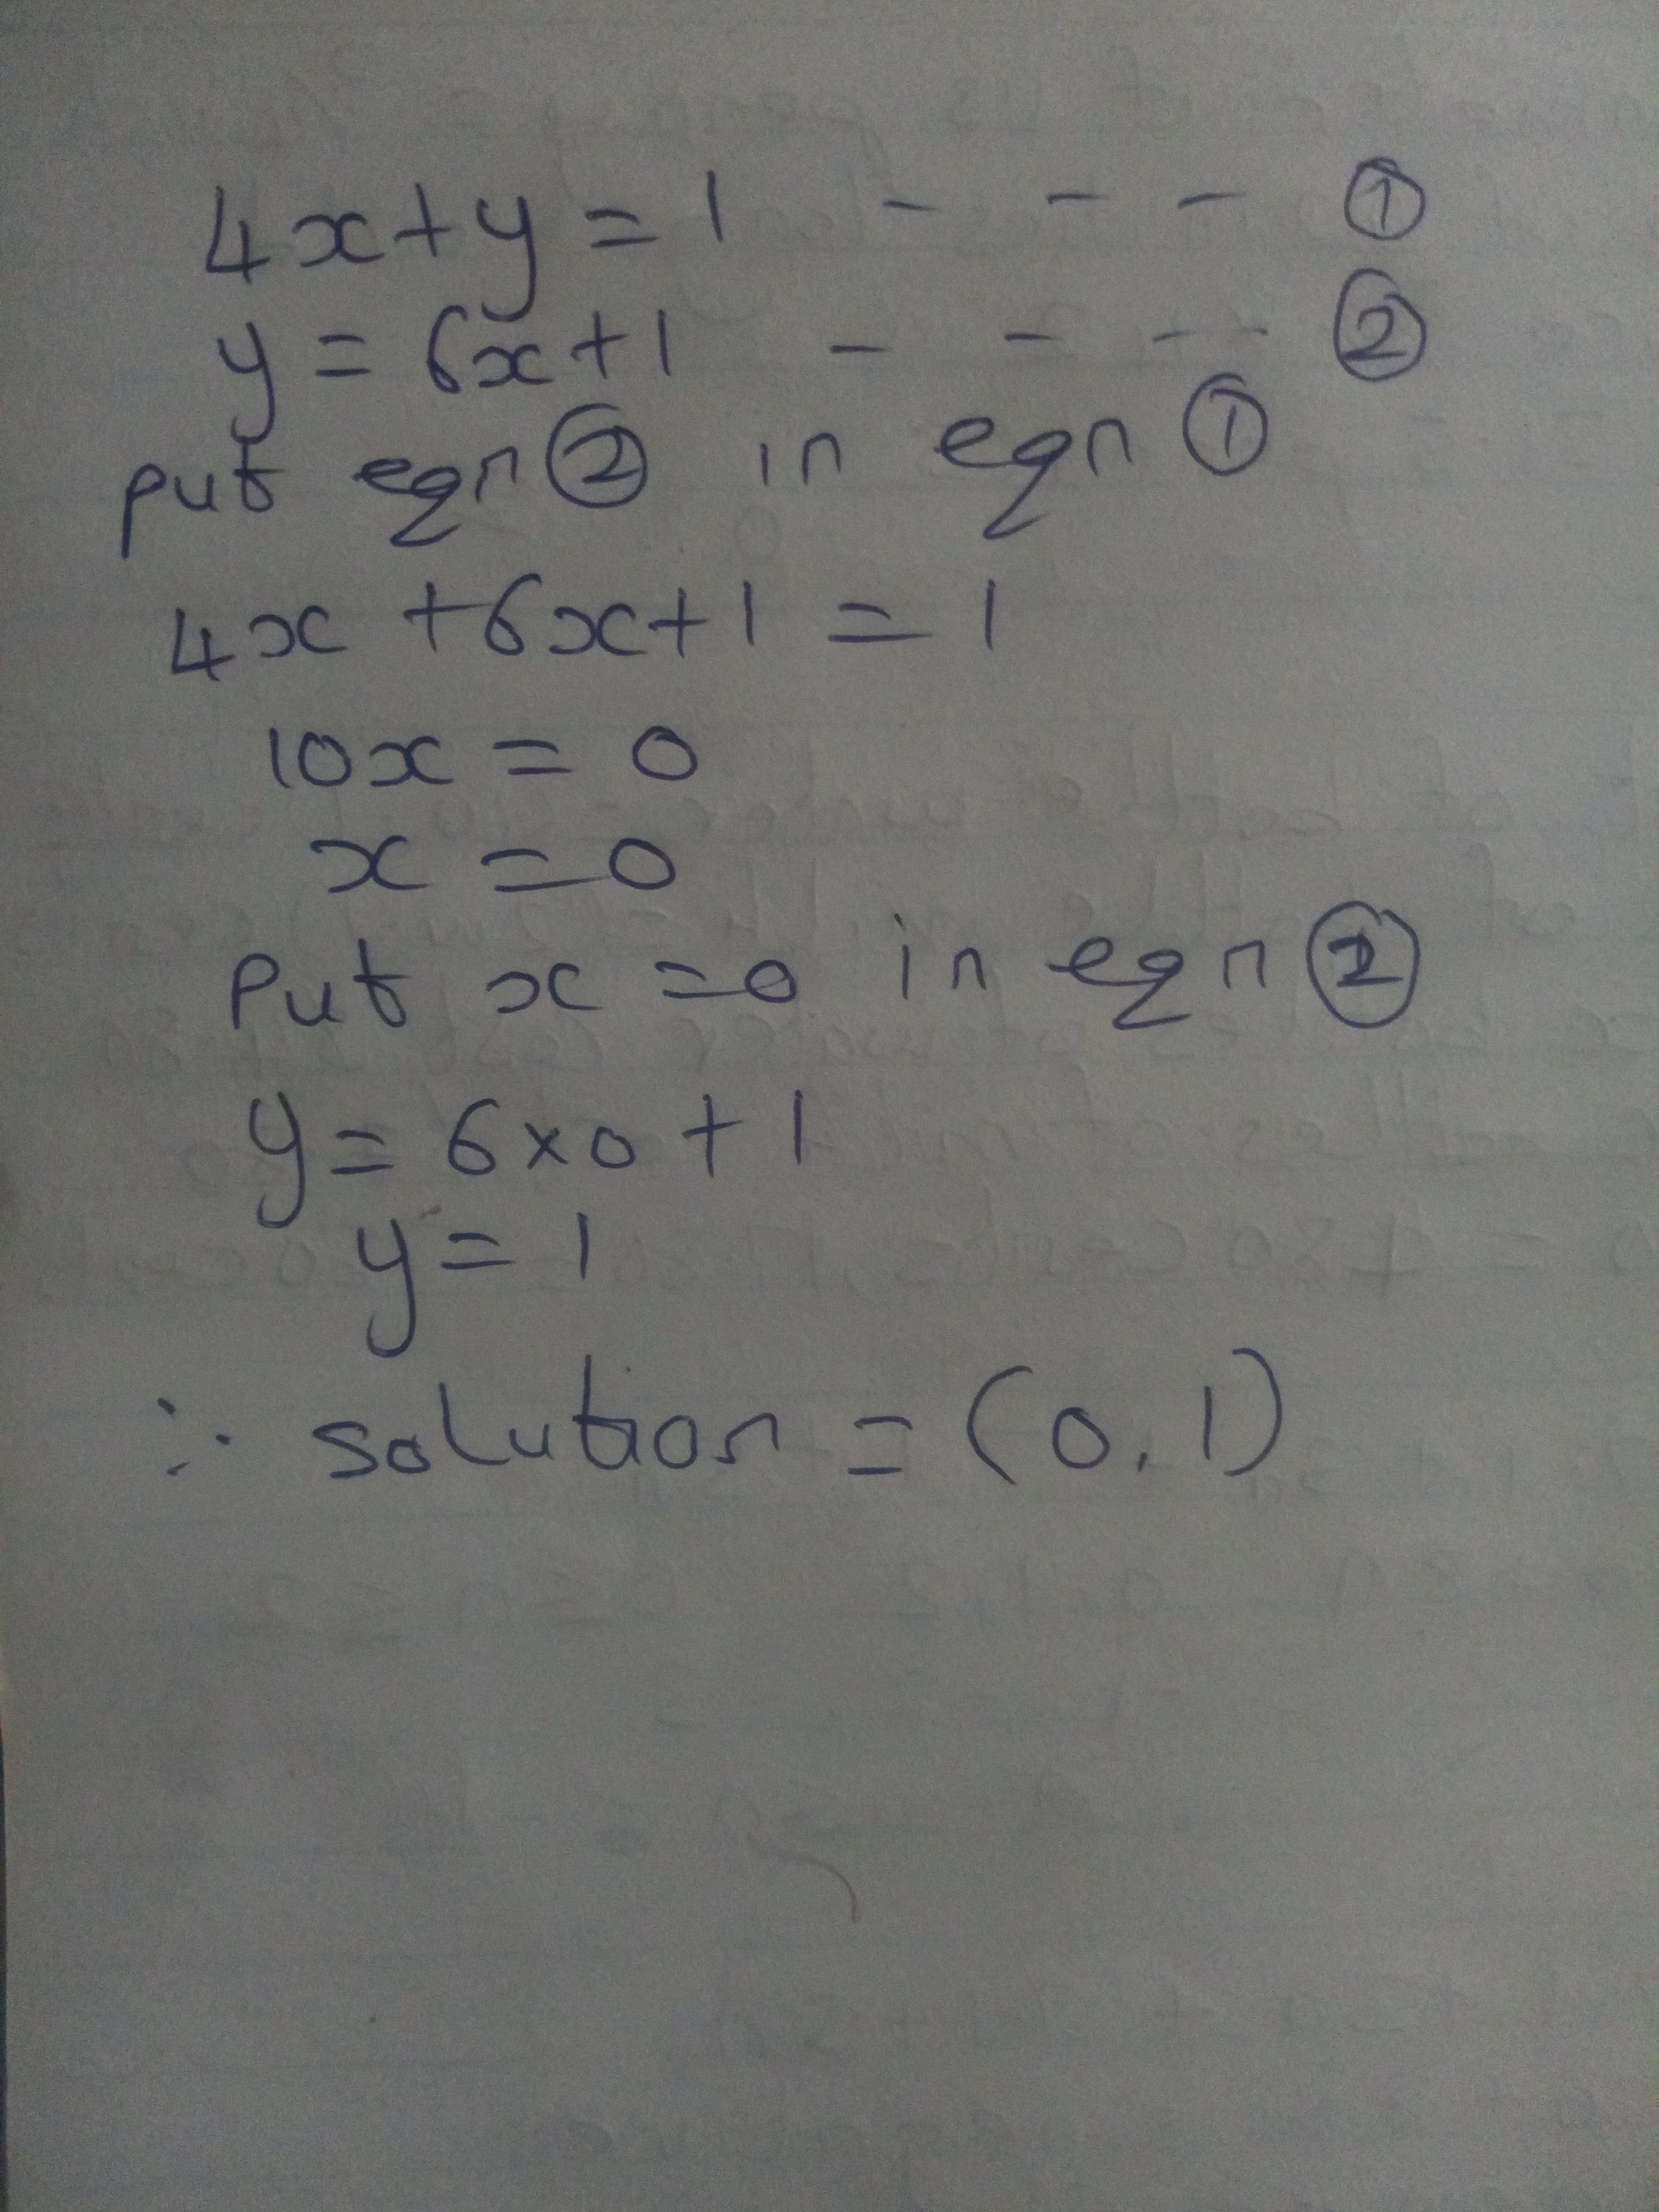 4x+y=1 - - - ①
y=6x+1 - - - - ②
put eqn ② in eqn ①
4x +6x+1 = 1
10x = 0
x = 0
Put x =0 in eqn ②
y = 6×0+1
y = 1
∴ solution = (0,1)